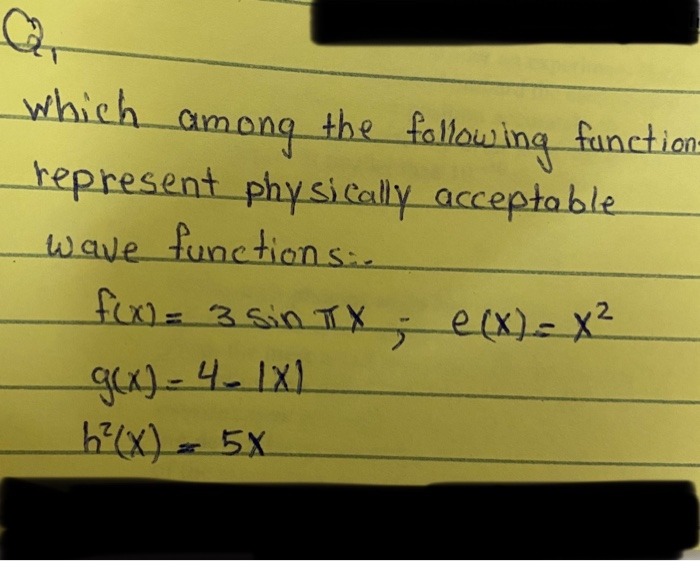 Q1
which among the following function
represent physically acceptable
wave functions:-
f(x) = 3 sin πx ; e(x) = x²
g(x) = 4 - |x|
h²(x) = 5x